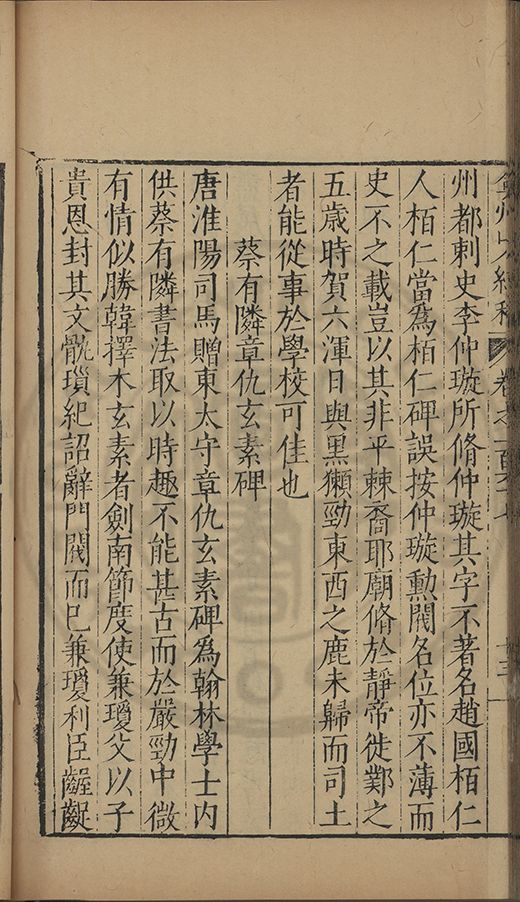 州都刺史李仲璇所脩仲璇其字不著名趙國栢仁
人栢仁當爲栢仁碑誤按仲璇勲閥名位亦不薄而
史不之載豈以其非平棘裔耶廟脩於靜帝徙鄴之
五歲時賀六渾日與黑獺勁東西之鹿未歸而司土
者能從事於學校可佳也
蔡有隣章仇玄素碑
唐淮陽司馬贈東太守章仇玄素碑爲翰林學士内
供蔡有隣書法取以時趣不能甚古而於嚴勁中微
有情似勝韓擇木玄素者劍南節度使兼瓊父以子
貴恩封其文骫瑣紀詔辭門閥而已兼瓊利臣齷齪